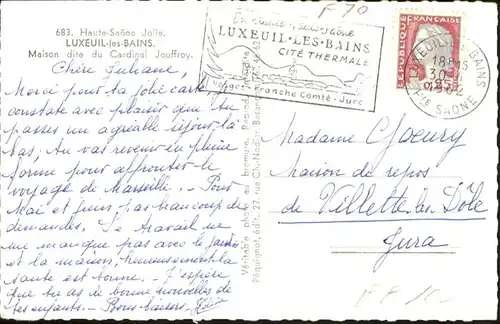 683. Haute-Saône Jolie.
LUXEUIL-les-BAINS.
Maison dite du Cardinal Jouffroy.
Chère Juliane,
Merci pour ta jolie carte
constate avec plaisir que tu
passes un agréable séjour là
bas, tu vas revenir en pleine
forme pour affronter le
voyage de Marseille. - Pour
Mai et juin pas beaucoup de
demandes. Le travail ne
me manque pas avec le jardin
et la maison, heureusement la
santé est bonne. - J'espère
que tu as de bonnes nouvelles de
tes enfants. - Bons baisers
Véritable photo au bromure. Reproduction
Péquignot, édit. 27, rue Ch.-Nodier Besançon
F 70
LUXEUIL-LES-BAINS
CITÉ THERMALE
Vosges-Franche Comté-Jura
RÉPUBLIQUE FRANÇAISE
LUXEUIL-LES-BAINS
18H45
30
HTE SAONE
0,25
Madame
Maison de repos
de Villette les Dôle
Jura